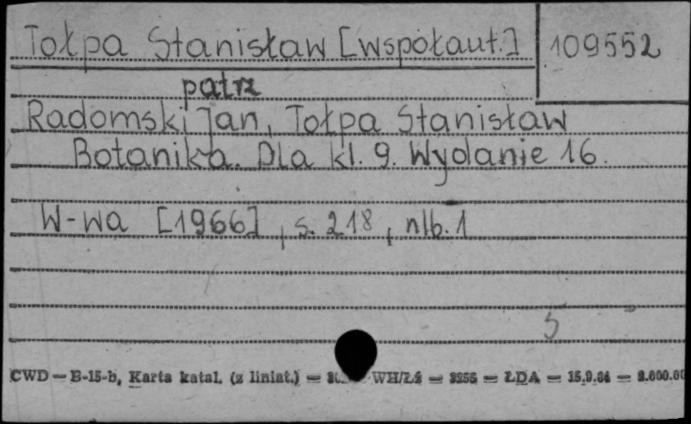 Tołpa Stanisław [współaut.] 109552
patrz
Radomski Jan, Tołpa Stanisław
Botanika. Dla kl. 9. Wydanie 16.
W-wa [1966], s. 218, nlb. 1
5
CWD — B-15-b, Karta katal. (z liniat.) — WH/Łś — 3255 — ŁDA — 15.9.64